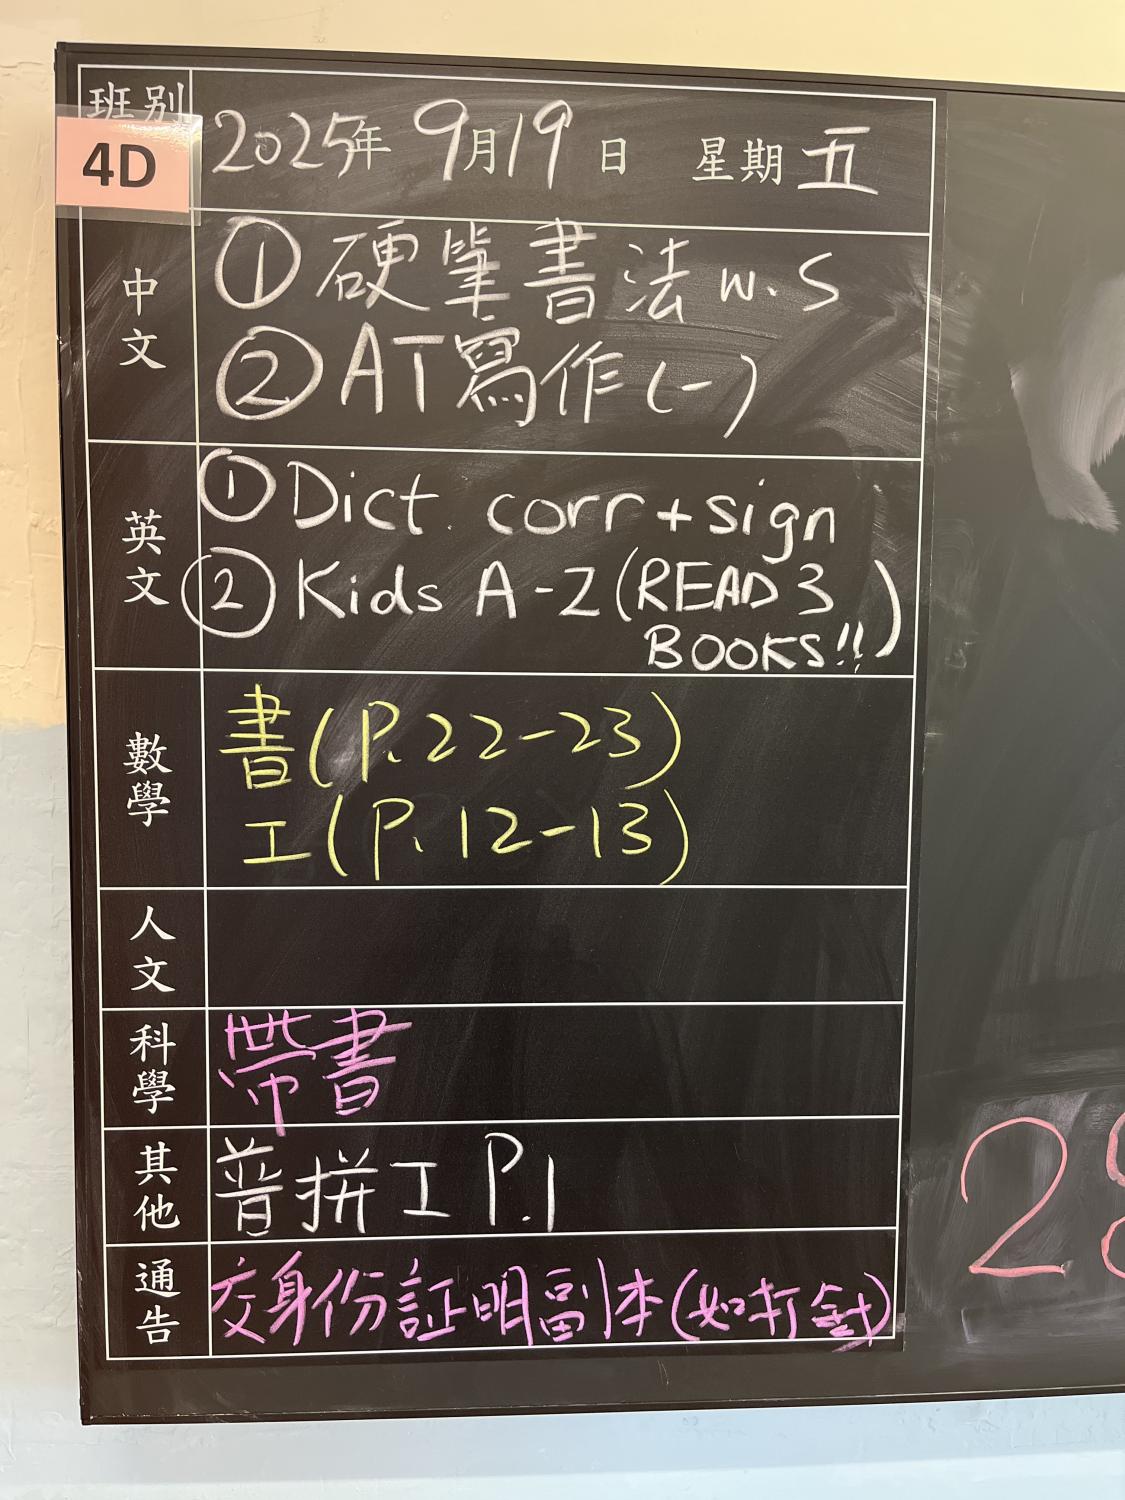 班別
4D
2025年 9月19日 星期五
中文
① 硬筆書法 W.S
② AT寫作(一)
英文
① Dict. corr + sign
② Kids A-Z (READ 3
BOOKS!!)
數學
書(P.22-23)
工(P.12-13)
人文
科學
帶書
其他
普拼工 P.1
通告
交身份証明副本(如打針)
28